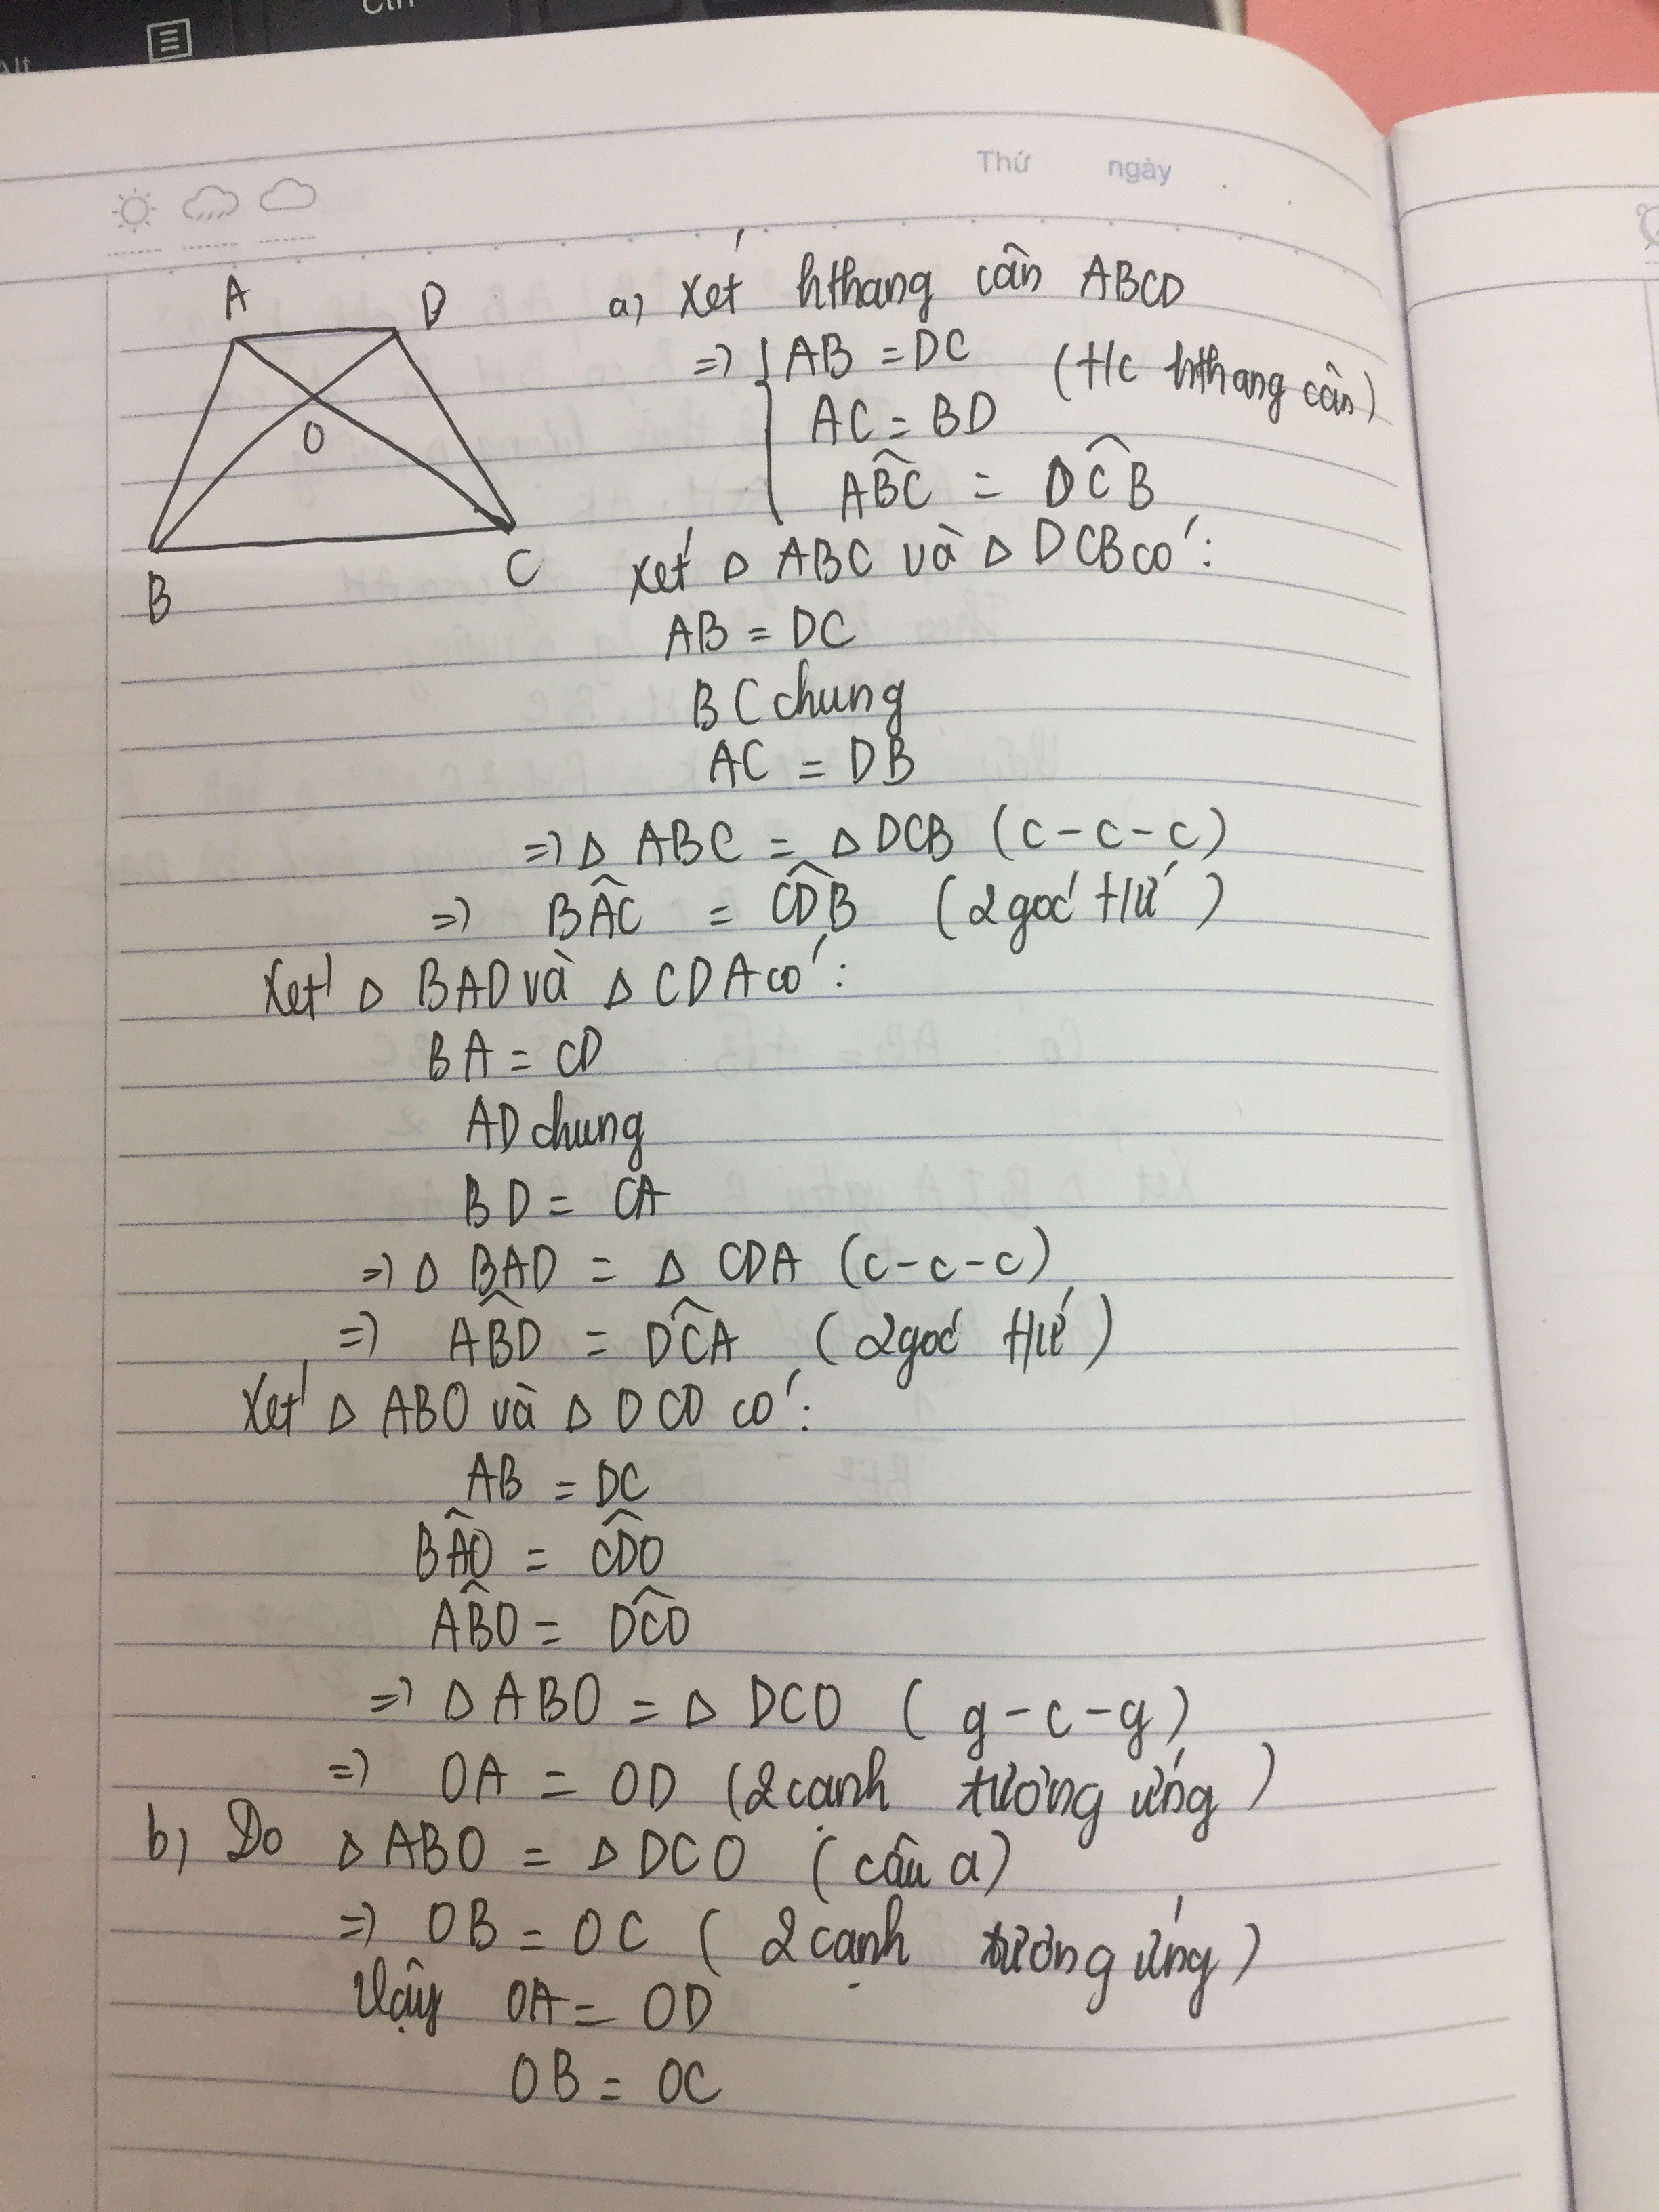 Ctrl
Alt
Thứ ngày
A D
O
B C
a) Xét hthang cân ABCD
=> { AB = DC (t/c hthang cân)
AC = BD
ABC^ = DCB^
Xét Δ ABC và Δ DCB có:
AB = DC
BC chung
AC = DB
=> Δ ABC = Δ DCB (c-c-c)
=> BAC^ = CDB^ (2 góc t/ứ)
Xét Δ BAD và Δ CDA có:
BA = CD
AD chung
BD = CA
=> Δ BAD = Δ CDA (c-c-c)
=> ABD^ = DCA^ (2 góc t/ứ)
Xét Δ ABO và Δ DCO có:
AB = DC
BAO^ = CDO^
ABO^ = DCO^
=> Δ ABO = Δ DCO (g-c-g)
=> OA = OD (2 cạnh tương ứng)
b) Do Δ ABO = Δ DCO (câu a)
=> OB = OC (2 cạnh tương ứng)
Vậy OA = OD
OB = OC